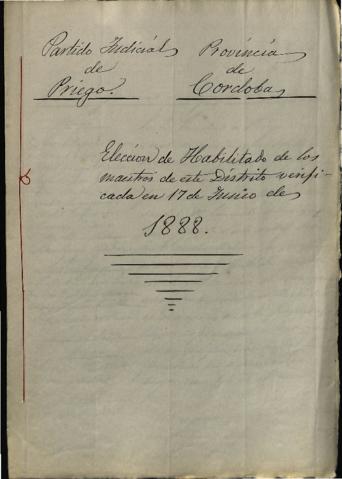 Partido Judicial Provincia
de de
Priego. Cordoba
Elección de Habilitado de los
maestros de este Distrito verifi-
cada en 17 de Junio de
1888.